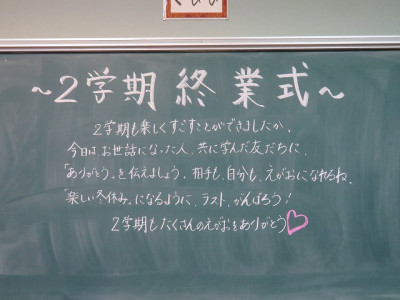 ~2学期 終業式~
2学期も楽しくすごすことができましたか。
今日は、お世話になった人、共に学んだ友だちに、
「ありがとう」を伝えましょう。相手も、自分も、えがおになれるね。
「楽しい冬休み」になるように、ラスト、がんばろう!
2学期もたくさんのえがおをありがとう♡